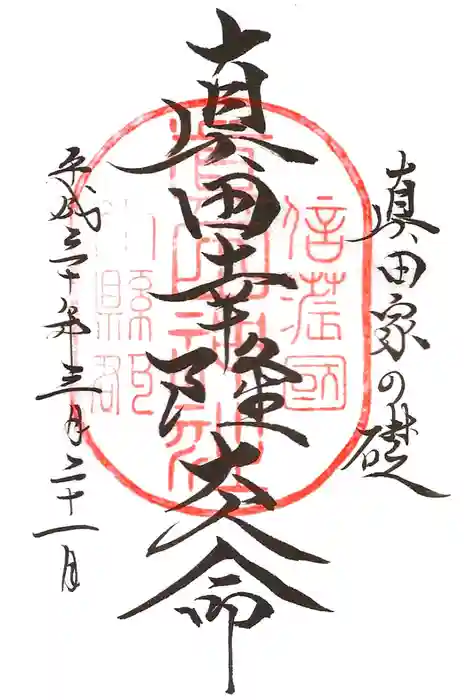 真田家の礎
真田幸隆大人命
平成三十年三月二十一月
信濃國
小縣郡